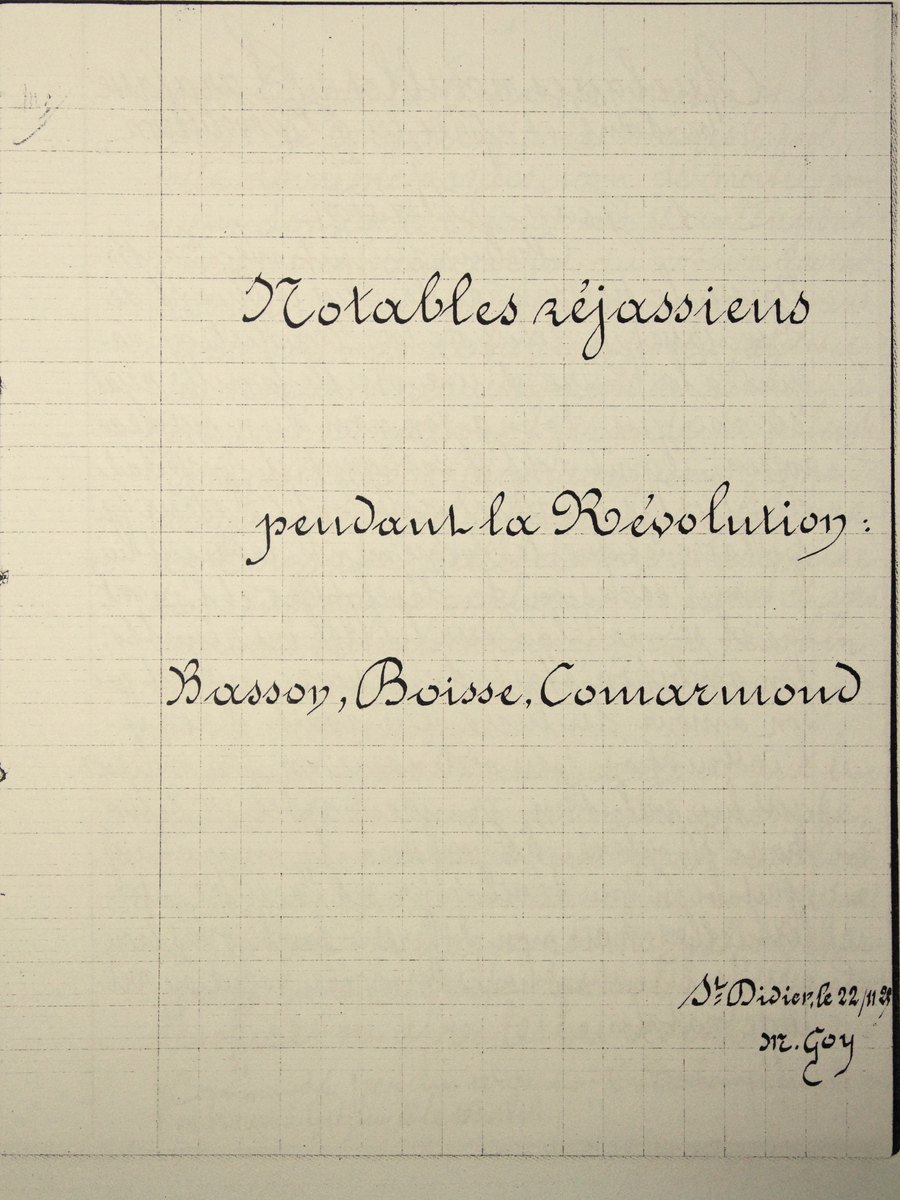 Notables réjassiens
pendant la Révolution :
Basson, Boisse, Comarmond
St Didier, le 22/11
M. Goy